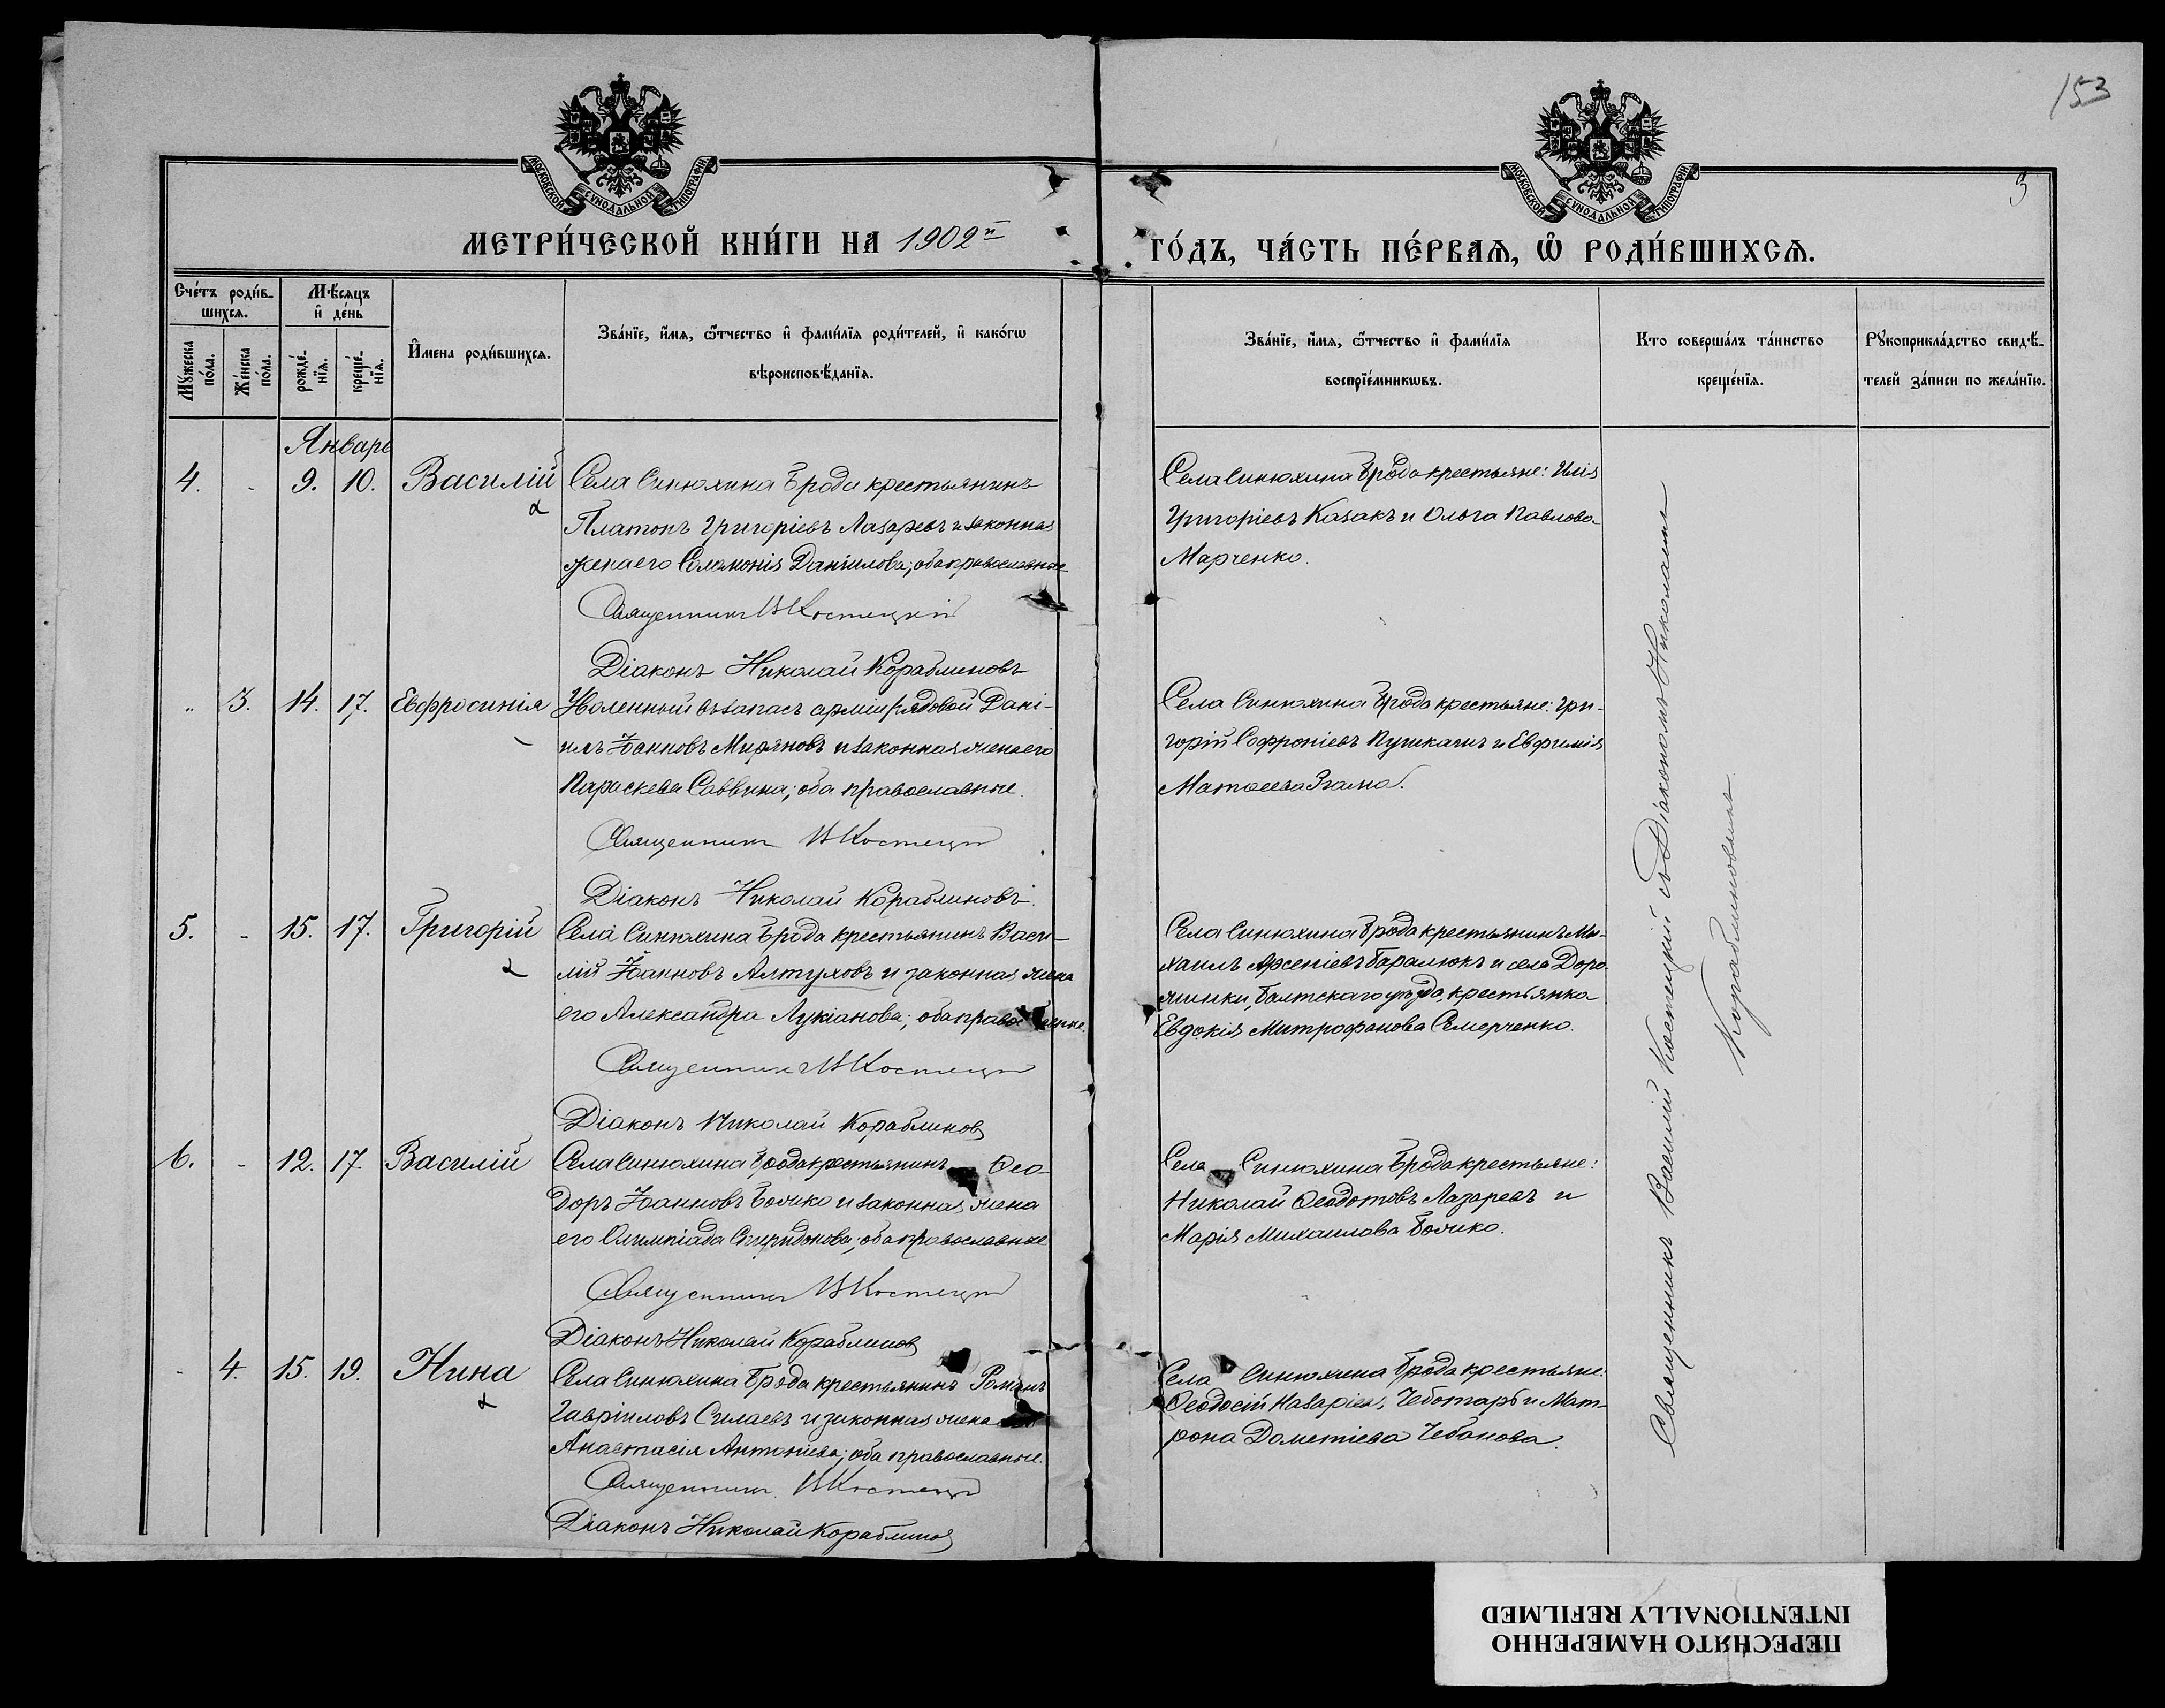 153
3
МОСКОВСКОЙ СѴНОДАЛЬНОЙ ТИПОГРАФІИ
МОСКОВСКОЙ СѴНОДАЛЬНОЙ ТИПОГРАФІИ
МЕТРИ́ЧЕСКОЙ КНИ́ГИ НА 1902й
ГО́ДЪ, ЧА́СТЬ ПЕ́РВАѦ, Ѡ҆ РОДИ́ВШИХСѦ.
Сче́тъ роди́в-
шихсѧ.
Мѣ́сѧцъ
и҆ де́нь
Мꙋ́жеска по́ла.
Же́нска по́ла.
рожде́-нїѧ.
креще́-нїѧ.
И҆мена роди́вшихсѧ.
Зва́нїе, и҆́мѧ, ѻ҆́тчество и҆ фами́лїѧ роди́телей, и҆ како́гѡ
вѣроисповѣ́данїѧ.
Зва́нїе, и҆́мѧ, ѻ҆́тчество и҆ фами́лїѧ
воспрїе́мникѡвъ.
Кто соверша́лъ та́инство
креще́нїѧ.
Рꙋкоприкла́дство свидѣ́-
телей за́писи по жела́нїю.
Январь
4. - 9. 10. Василій
Села Синюхина Брода крестьянинъ
Платонъ Григоріевъ Лазаревъ и законная
жена его Соломонія Даніилова; оба православные
Священникъ В Костецкій
Діаконъ Николай Кораблиновъ
Села Синюхина Брода крестьяне: Илія
Григоріевъ Казакъ и Ольга Павлова
Марченко.
" 3. 14. 17. Евфросинія
Уволенный въ запасъ арміи рядовой Дані-
илъ Іоанновъ Миряновъ и законная жена его
Параскева Саввина; оба православные.
Священникъ В Костецкі
Діаконъ Николай Кораблиновъ.
Села Синюхина Брода крестьяне: Гри-
горій Софроніевъ Пушкачъ и Евфимія
Матѳеева
5. - 15. 17. Григорій
Села Синюхина Брода крестьянинъ Васи-
лій Іоанновъ Алтуховъ и законная жена
его Александра Лукіанова; оба православные.
Священникъ В Костецкі
Діаконъ Николай Кораблиновъ
Села Синюхина Брода крестьянинъ Ми-
хаилъ Арсеніевъ Баралюкъ и села Доро-
жинки, Балтскаго уѣзда, крестьянка
Евдокія Митрофанова Семерченко.
6. - 12. 17. Василій
Села Синюхина Брода крестьянинъ Ѳео-
доръ Іоанновъ Божко и законная жена
его Олимпіада Спиридонова; оба православные
Священникъ В Костецкі
Діаконъ Николай Кораблиновъ
Села Синюхина Брода крестьяне:
Николай Ѳеодотовъ Лазаревъ и
Марія Михаилова Божко.
- 4. 15. 19. Нина
Села Синюхина Брода крестьянинъ Романъ
Гавріиловъ Силаевъ и законная жена
Анастасія Антоніева; оба православные.
Священникъ В Костецкі
Діаконъ Николай Кораблиновъ
Села Синюхина Брода крестьяне:
Ѳеодосій Назаріевъ Чеботарь и Мат-
рона Дометіева Чебанова.
Священникъ Василій Костецкій съ Діакономъ Николаемъ
Кораблиновымъ
ПЕРЕСНЯТО НАМЕРЕННО
INTENTIONALLY REFILMED